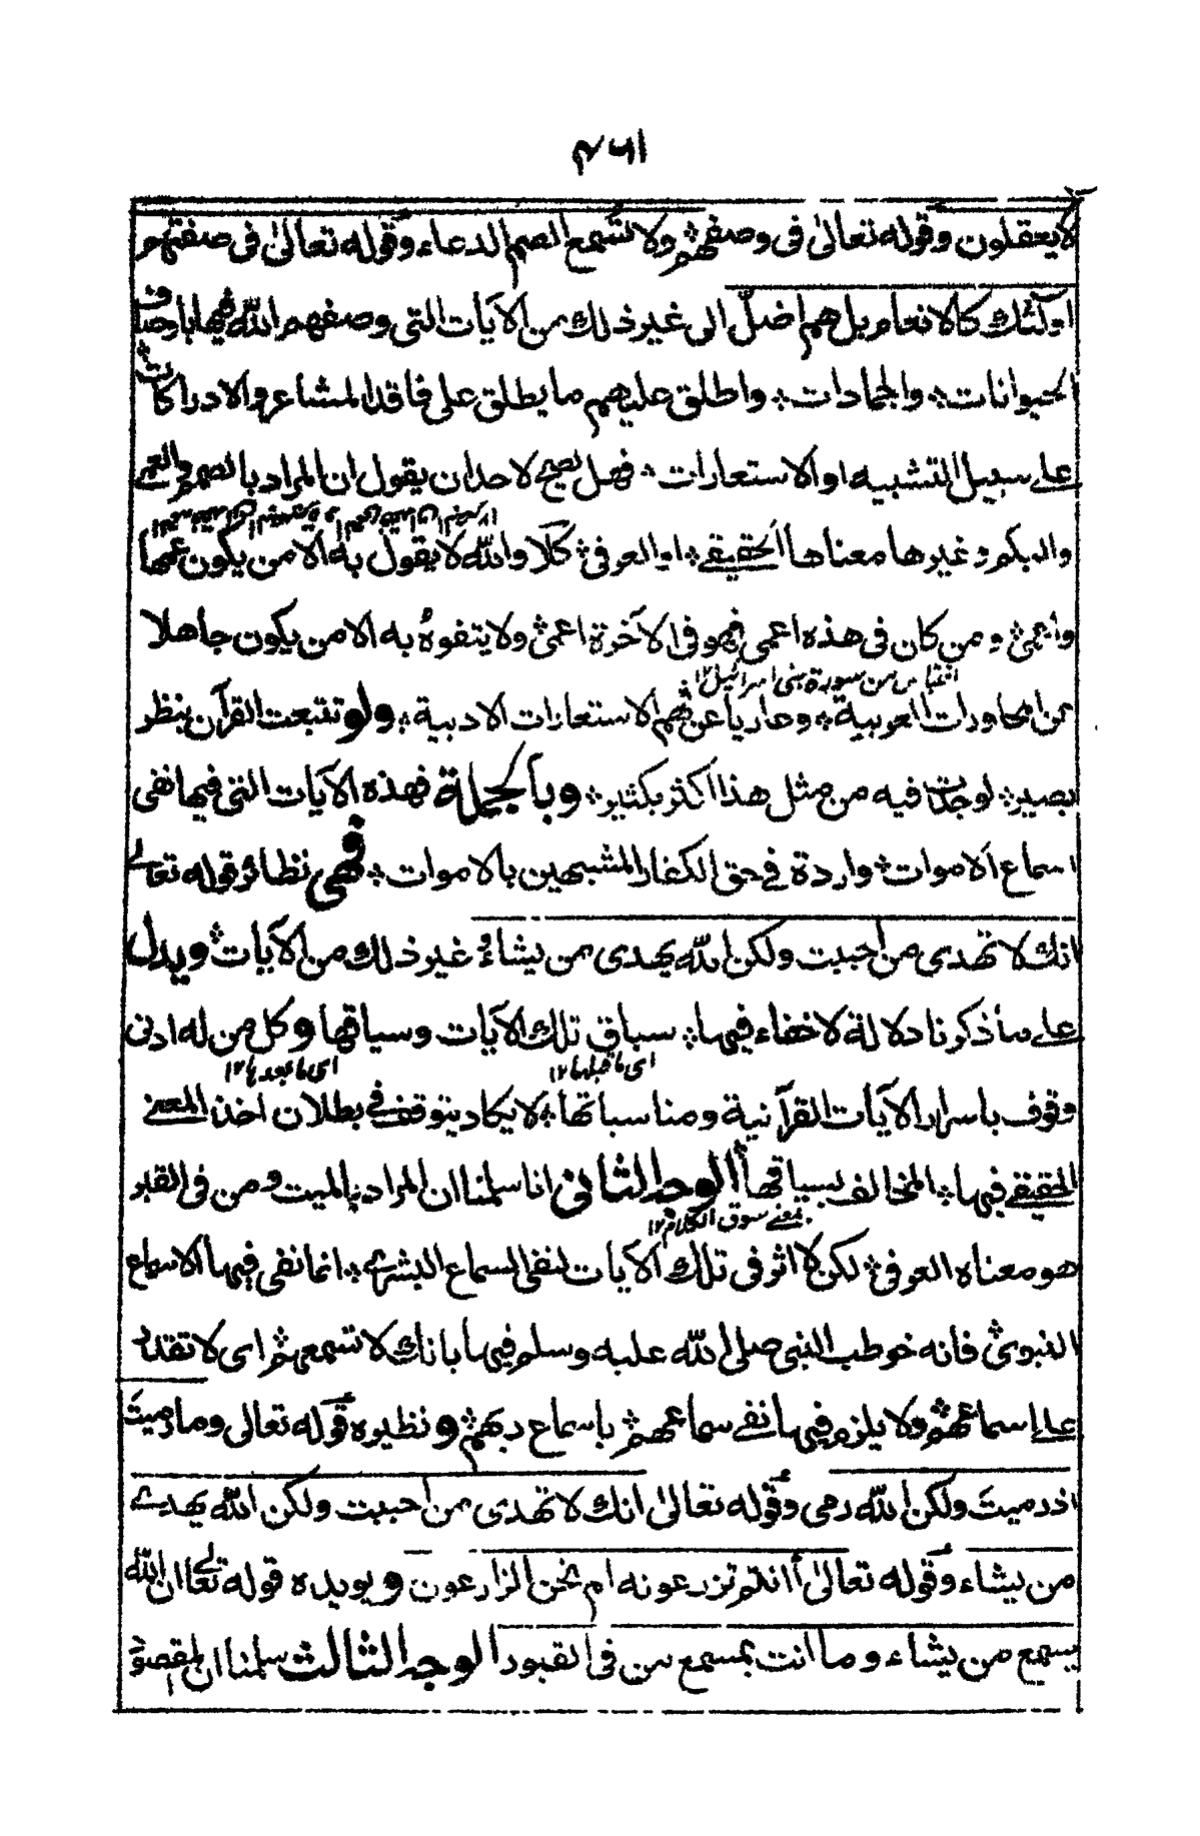 لا يعقلون وقوله تعالىٰ فى وصفهم ولا تسمع الصم الدعاء وقوله تعالىٰ فى صفتهم
اولٰئك كالانعام بل هم اضلّ الى غير ذلك من الاٰيات التى وصفهم الله فيها باوصاف
الحيوانات؞ والجمادات؞ واطلق عليهم ما يطلق على فاقد المشاعر والادراكات
على سبيل التشبيه او الاستعارات؞ فهل يصح لاحد ان يقول ان المراد بالصم والعمى
والبكم وغيرها معناها الحقيقے؞ او العرفى؞ كلّا والله لا يقول به الا من يكون عمها
واعمىٰ؞ ومن كان فى هذه اعمى فهو فى الاٰخرة اعمىٰ؞ ولا يتفوه به الا من يكون جاهلا
اقتباس من سورة بنى اسرائيل ١٢
من المحاورات العربية؞ وعاريا عن فهم الاستعارات الادبية؞ ولو تتبعت القرآن بنظر
بصير؞ لوجدت فيه من مثل هذا اكثر بكثير؞ وبالجملة فهذه الاٰيات التى فيها نفى
اسماع الاموات؞ واردة فے حق الكفار المشبهين بالاموات؞ فهى نظائر قوله تعالے
انك لا تهدى من احببت ولكن الله يهدى من يشاء؞ وغير ذلك من الاٰيات؞ ويدل
علے ما ذكرنا دلالة لا خفاء فيها؞ سباق تلك الاٰيات وسياقها وكل من له ادنى
اى ما قبلها ١٢ اى ما بعدها ١٢
وقوف باسرار الاٰيات القرآنية ومناسباتها؞ لا يكاد يتوقف فے بطلان اخذ المعنے
الحقيقے فيها؞ المخالف بسياقها الوجه الثانى انا سلمنا ان المراد بالميت ومن فى القبر
بمعنے سوق الكلام ١٢
هو معناه العرفى؞ لكن لا اثر فى تلك الاٰيات لنفى السماع البشرے؞ انما نفى فيها الاسماع
النبوى؞ فانه خوطب النبى صلى الله عليه وسلم فيها بانك لا تسمعهم؞ اى لا تقدر
علے اسماعهم؞ ولا يلزم فيها نفے سماعهم؞ باسماع ربهم؞ ونظيره قوله تعالى وما رميتَ
اذ رميتَ ولكن الله رمى وقوله تعالىٰ انك لا تهدى من احببت ولكن الله يهدے
من يشاء وقوله تعالىٰ أانتم تزرعونه ام نحن الزارعون ويويده قوله تعالےٰ ان الله
يسمع من يشاء وما انت بمسمع من فى القبور الوجه الثالث سلمنا ان المقصود